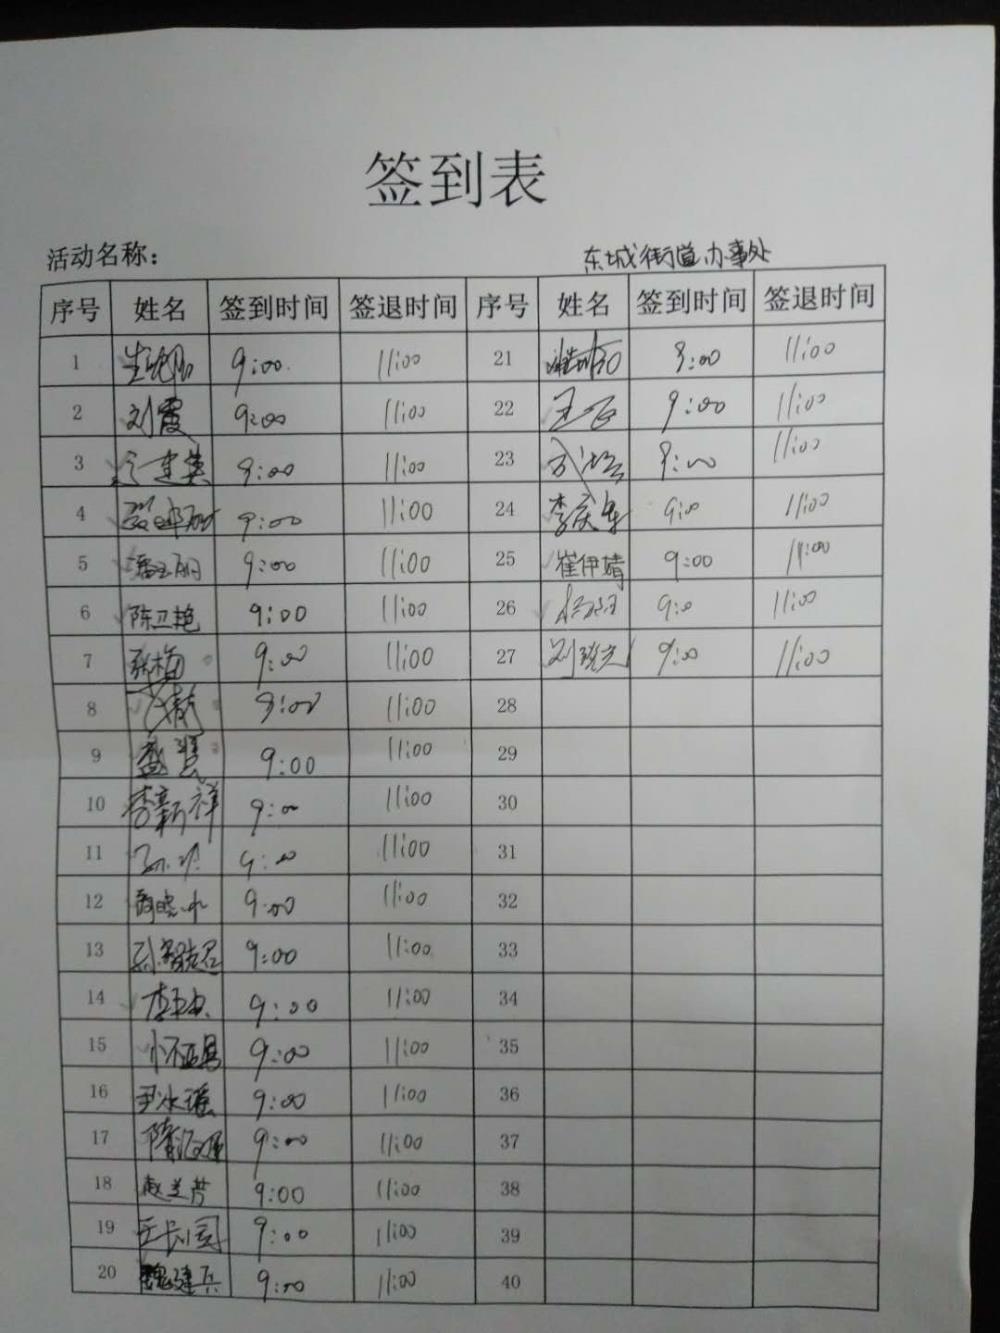 签到表
活动名称：
东城街道办事处
序号 姓名 签到时间 签退时间 序号 姓名 签到时间 签退时间
1 9:00 11:00 21 9:00 11:00
2 刘霞 9:00 11:00 22 9:00 11:00
3 9:00 11:00 23 9:00 11:00
4 9:00 11:00 24 李庆军 9:00 11:00
5 9:00 11:00 25 崔伊婧 9:00 11:00
6 陈卫艳 9:00 11:00 26 9:00 11:00
7 张梅 9:00 11:00 27 刘晓光 9:00 11:00
8 9:00 11:00 28
9 9:00 11:00 29
10 李新祥 9:00 11:00 30
11 9:00 11:00 31
12 9:00 11:00 32
13 9:00 11:00 33
14 9:00 11:00 34
15 9:00 11:00 35
16 尹冰瑶 9:00 11:00 36
17 9:00 11:00 37
18 赵兰芹 9:00 11:00 38
19 9:00 11:00 39
20 魏建兵 9:00 11:00 40